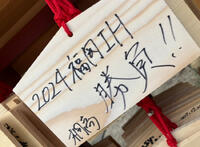 2024福岡IH
勝負!!